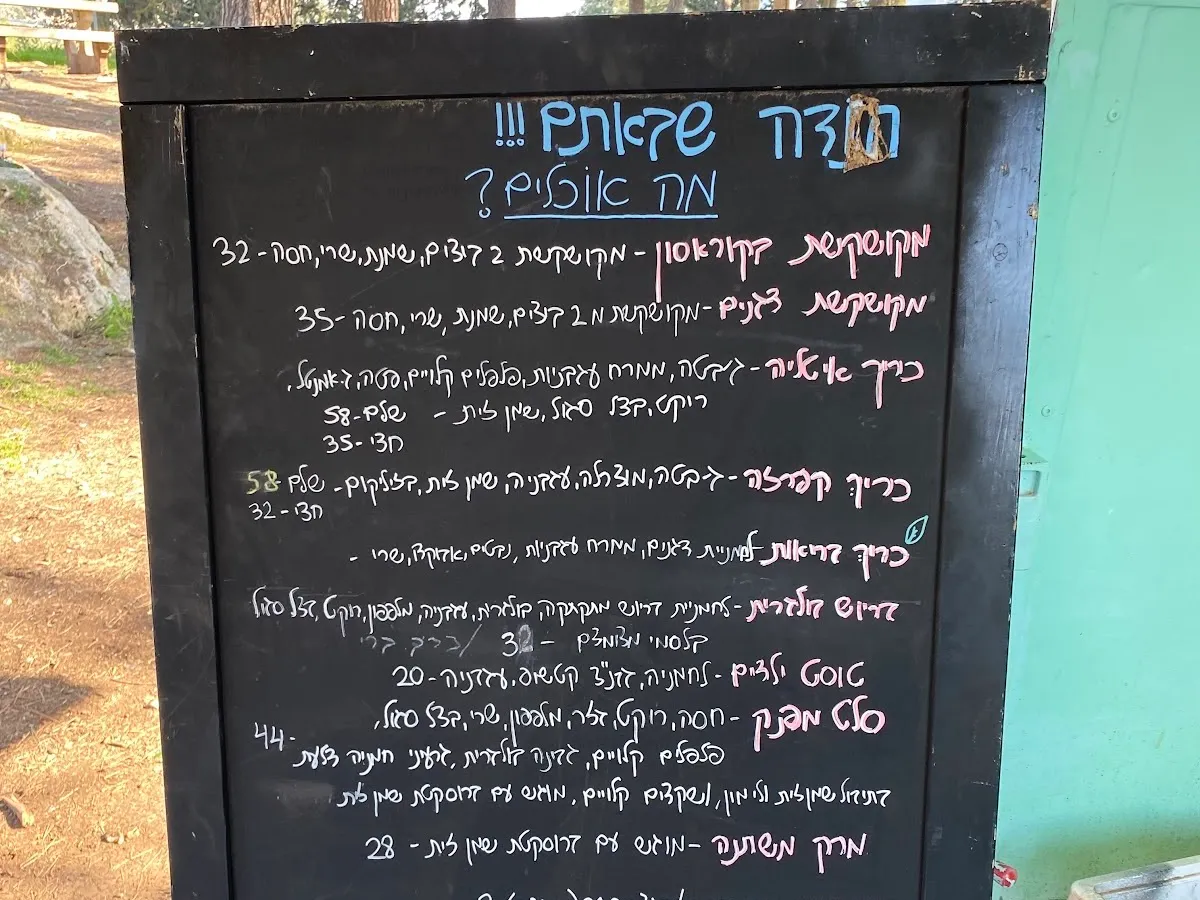 תודה שבאתם!!!
מה אוכלים?
מקושקשת בקוראסון - מקושקשת 2 ביצים, שמנת, שרי, חסה - 32
מקושקשת דגנים - מקושקשת מ 2 ביצים, שמנת, שרי, חסה - 35
כריך איטליה - ג'בטה, ממרח עגבניות, פלפלים קלויים, פטה, ג.אמנטל,
רוקט, בצל סגול, שמן זית - שלם - 58
חצי - 35
כריך קפרזה - ג'בטה, מוצרלה, עגבניה, שמן זית, בזיליקום - שלם 58
חצי - 32
כריך בריאות - לחמניית דגנים, ממרח עגבניות, נבטים, אבוקדו, שרי -
בריוש בולגרית - לחמנית בריוש מתקתקה, בולגרית, עגבניה, מלפפון, רוקט, בצל סגול
בלסמי מצומצם - 32
טוסט ילדים - לחמניה, גבנ"צ קטשופ, עגבניה - 20
סלט מפנק - חסה, רוקט, גזר, מלפפון, שרי, בצל סגול,
פלפלים קלויים, גבינה בולגרית, גרעיני חמניה דלעת - 44
בתיבול שמן זית ולימון, ושקדים קלויים, מוגש עם ברוסקטת שמן זית
מרק משתנה - מוגש עם ברוסקטת שמן זית - 28